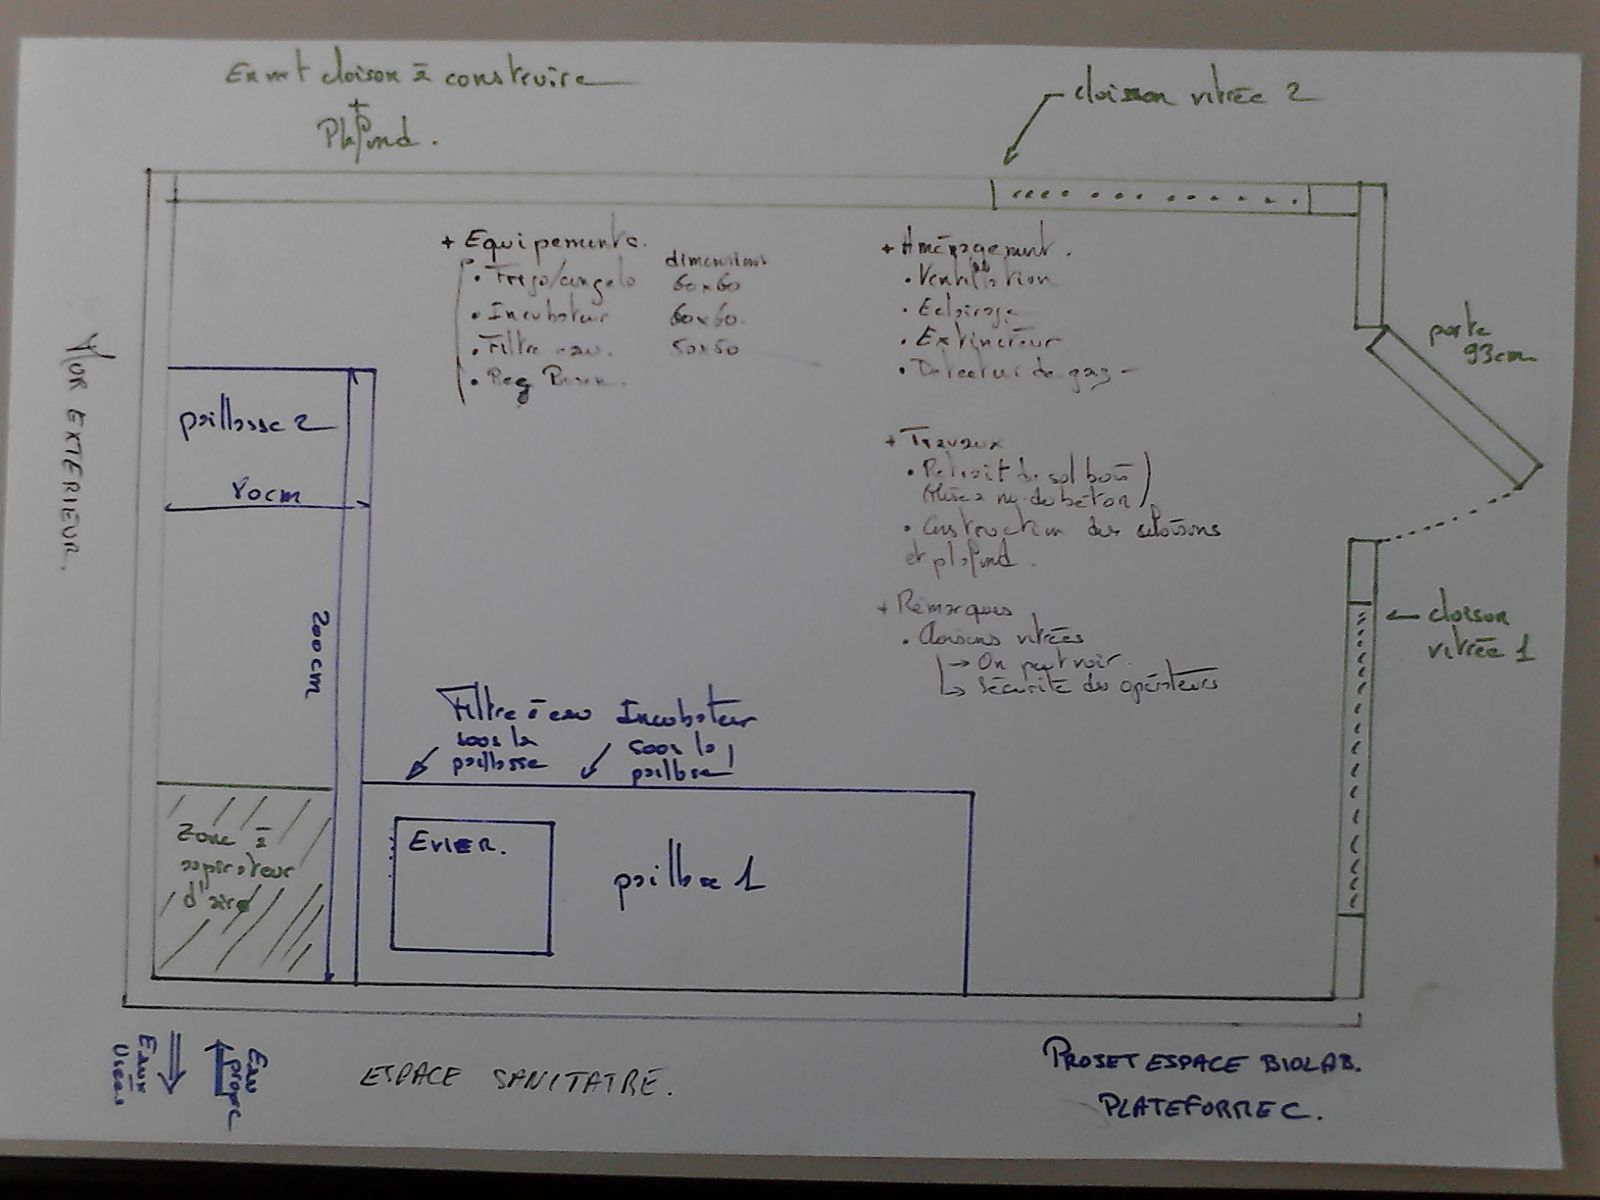 cloison à construire
+
Plafond.
cloison vitrée 2
+ Equipements.
dimensions
• Frigo/congelo 60x60
• Incubateur 60x60.
• Filtre eau. 50x50
• Bec Bunsen.
+ Aménagement.
• Ventilation
• Eclairage
• Extincteur
• Detecteur de gaz -
porte
93cm
MUR EXTERIEUR.
paillasse 2
80cm
200cm
+ Travaux
• Retrait du sol bois
(Mise à nu du béton)
• Construction des cloisons
et plafond.
+ Remarques
• Cloisons vitrées
→ On peut voir.
↳ Sécurité des opérateurs
← cloison
vitrée 1
Filtre à eau
sous la
paillasse
Incubateur
sous la
paillasse
Zone à
aspirateur
d'aire
EVIER.
paillasse 1
Eaux
Usées
Eau
propre
ESPACE SANITAIRE.
PROJET ESPACE BIOLAB.
PLATEFORME C.